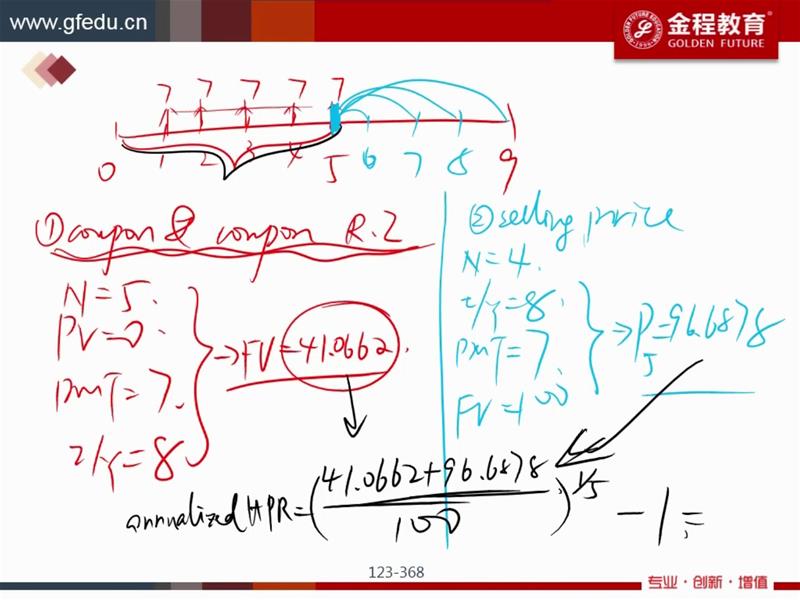 www.gfedu.cn
金程教育
GOLDEN FUTURE
7 7 7 7 7
0 1 2 3 4 5 6 7 8 9
① coupon & coupon R.I
② selling price
N=5.
PV=0.
PMT=7.
I/Y=8
→FV=41.0662.
N=4.
I/Y=8.
PMT=7.
FV=100
⇒P5=96.6878
annualized HPR=(41.0662+96.6878/100)^1/5 -1=
123-368
专业·创新·增值